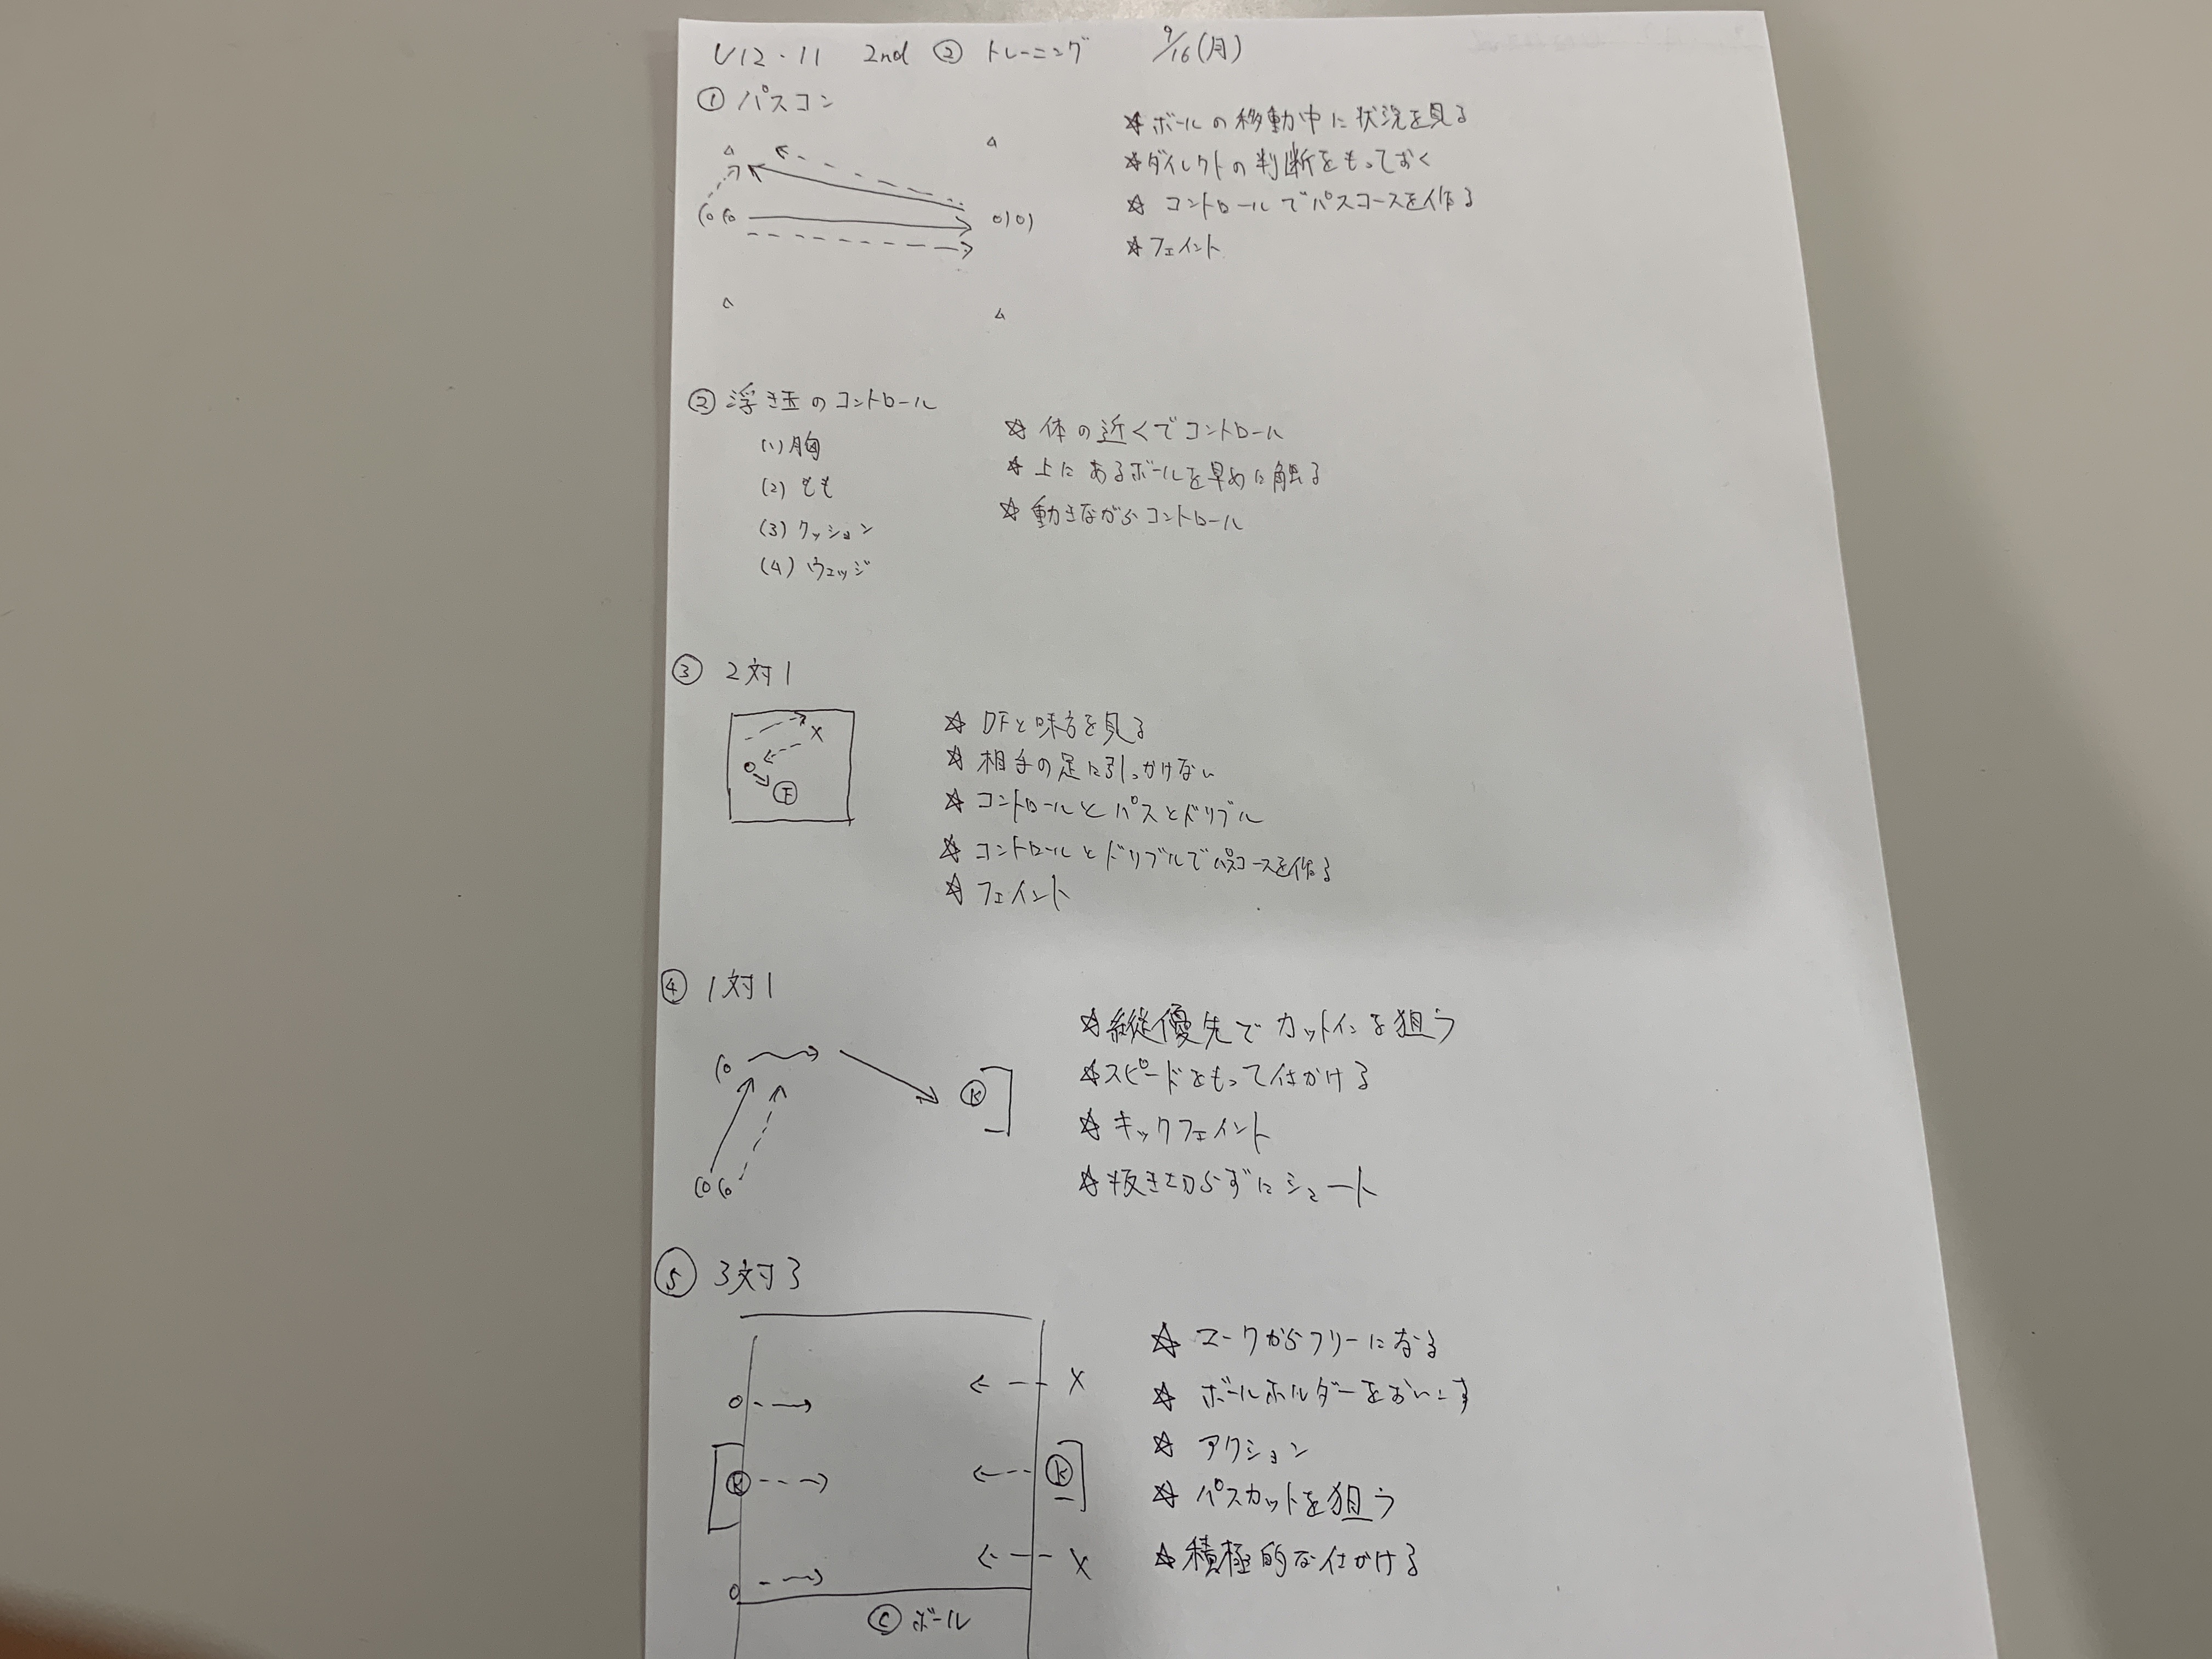 U12・11 2nd ② トレーニング 9/16(月)
① パスコン
☆ボールの移動中に状況を見る
☆ダイレクトの判断をもっておく
☆コントロールでパスコースを作る
☆フェイント
② 浮き玉のコントロール
(1) 胸
(2) もも
(3) クッション
(4) ウェッジ
☆体の近くでコントロール
☆上にあるボールを早めに触る
☆動きながらコントロール
③ 2対1
X
F
☆DFと味方を見る
☆相手の足に引っかけない
☆コントロールとパスとドリブル
☆コントロールとドリブルでパスコースを作る
☆フェイント
④ 1対1
K
☆縦優先でカットインを狙う
☆スピードをもって仕かける
☆キックフェイント
☆抜き切らずにシュート
⑤ 3対3
X
K
K
X
Ⓒ ボール
☆マークからフリーになる
☆ボールホルダーをおいこす
☆アクション
☆パスカットを狙う
☆積極的な仕かける